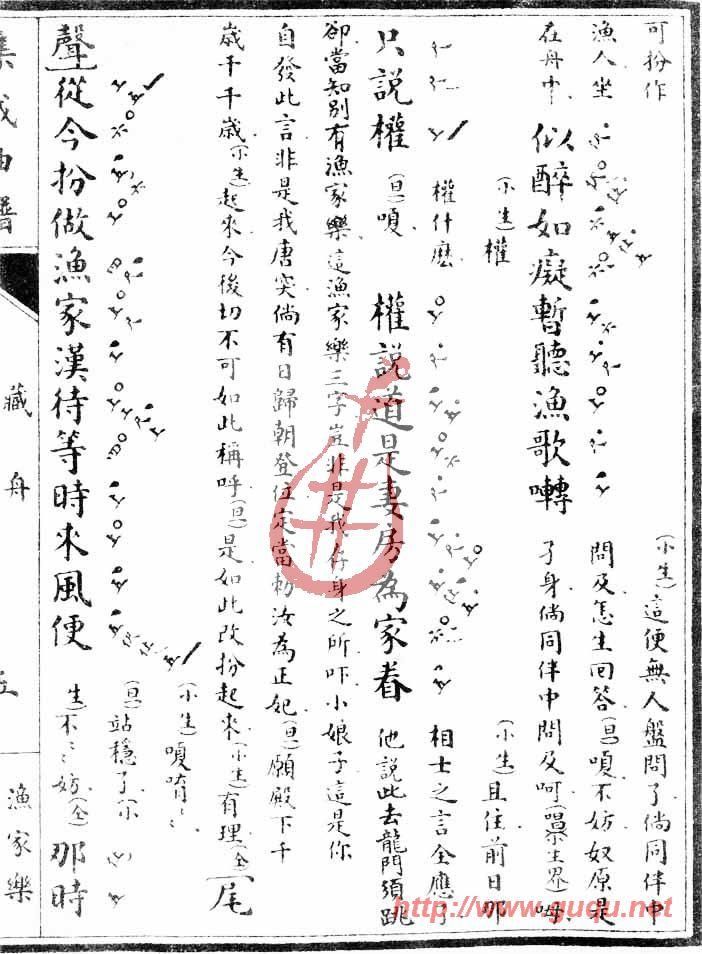 可扮作
漁人坐
在舟中
似醉如癡暫聽漁歌囀
(小生)這便無人盤問了倘同伴中
問及怎生回答(旦)嗄不妨奴原是
孑身倘同伴中問及呵
(小生)權
只說權(旦)嗄
權什麼
權說道是妻房為家眷
(小生)且住前日那
相士之言全應了
他說此去龍門須跳
卻當知別有漁家樂這漁家樂三字豈非是我存身之所吓小娘子這是你
自發此言非是我唐突倘有日歸朝登位定當勅汝為正妃(旦)願殿下千
歲千千歲(小生)起來今後切不可如此稱呼(旦)是如此改扮起來(小生)有理(仝)尾
聲從今扮做漁家漢待等時來風便
(小生)嗄唷〻
(旦)站穩了(小
生)不〻妨(仝)那時
集成曲譜
藏舟
漁家樂
http://www.guqu.net